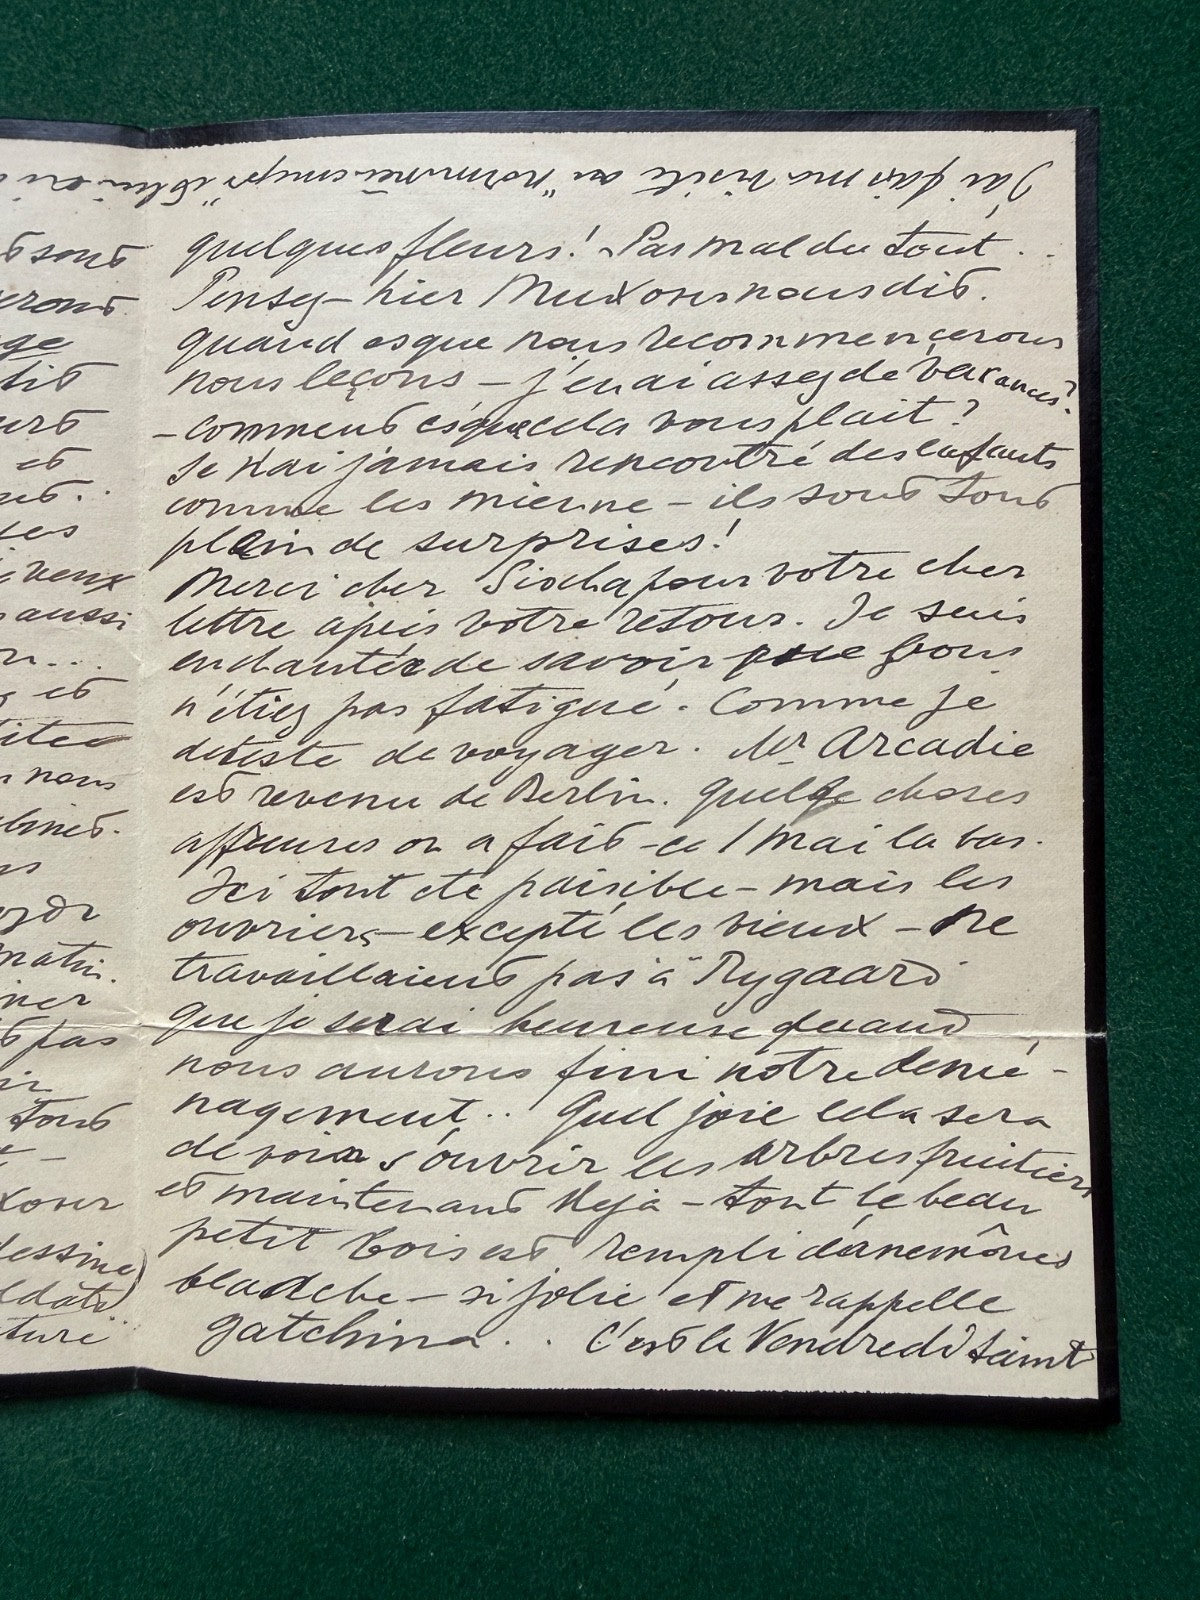 J'ai fais ma visite au
quelques fleurs! Pas mal du tout..
Pensez – hier nous dit.
quand esque nous recommencerons
nous leçons – j'en ai assez de vacances?
– comment esque cela vous plait?
Je n'ai jamais rencontré des enfants
comme les mienne – ils sont tout
plein de surprises!
Merci cher pour votre cher
lettre après votre retour. Je suis
enchantée de savoir que vous
n'étiez pas fatigué. Comme je
deteste de voyager. Mr Arcadie
est revenu de Berlin. Quelqe choses
affreuses on a fait – ce 1 Mai la bas.
Ici tout été paisible – mais les
ouvriers – excepté les vieux – ne
travaillaient pas à Rygaard
Que je serai heureuse quand
nous aurons fini notre demé-
nagement.. Quel joie cela sera
de voir s'ouvrir les arbres fruitiers
et maintenant deja – tout le beau
petit bois est rempli d'anemônes
blanche – si jolie et me rappelle
Gatchina.. C'est le Vendredi Saint
t sont
tit
et
veux
aussi
et
nous
matin.
pas
tout
dessine)